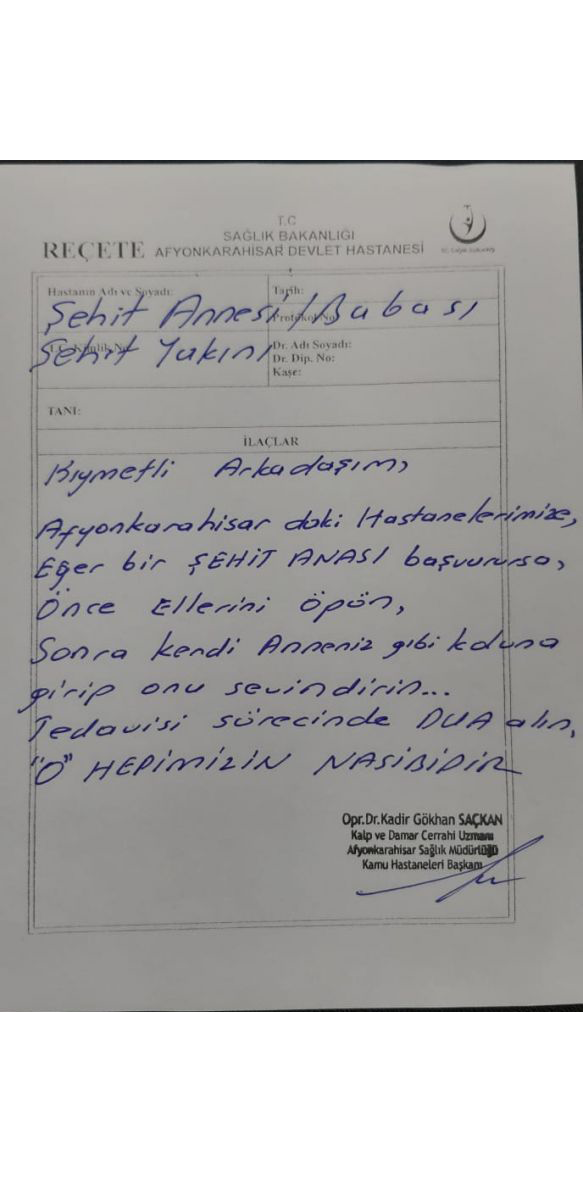 T.C
SAĞLIK BAKANLIĞI
REÇETE AFYONKARAHİSAR DEVLET HASTANESİ
T.C. Sağlık Bakanlığı
Hastanın Adı ve Soyadı:
Tarih:
Şehit Annesi/Babası
Protokol No
Şehit Yakını
T.C. Kimlik No
Dr. Adı Soyadı:
Dr. Dip. No:
Kaşe:
TANI:
İLAÇLAR
Kıymetli Arkadaşım,
Afyonkarahisar daki Hastanelerimize,
Eğer bir ŞEHİT ANASI başvurursa,
Önce Ellerini öpün,
Sonra kendi Anneniz gibi koluna
girip onu sevindirin...
Tedavisi sürecinde DUA alın,
"O" HEPİMİZİN NASİBİDİR
Opr.Dr.Kadir Gökhan SAÇKAN
Kalp ve Damar Cerrahi Uzmanı
Afyonkarahisar Sağlık Müdürlüğü
Kamu Hastaneleri Başkanı